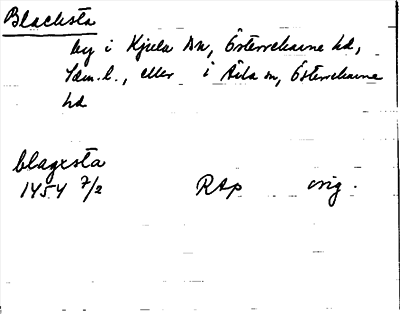 Blacksta
by i Kjula sn, Österrekarne hd,
Söm.l., eller i Åila sn, Österrekarne
hd
blagxsta
1454 7/2 RAp orig.